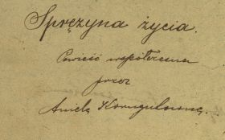 Sprężyna życia.
Powieść współczesna
przez
Anielę